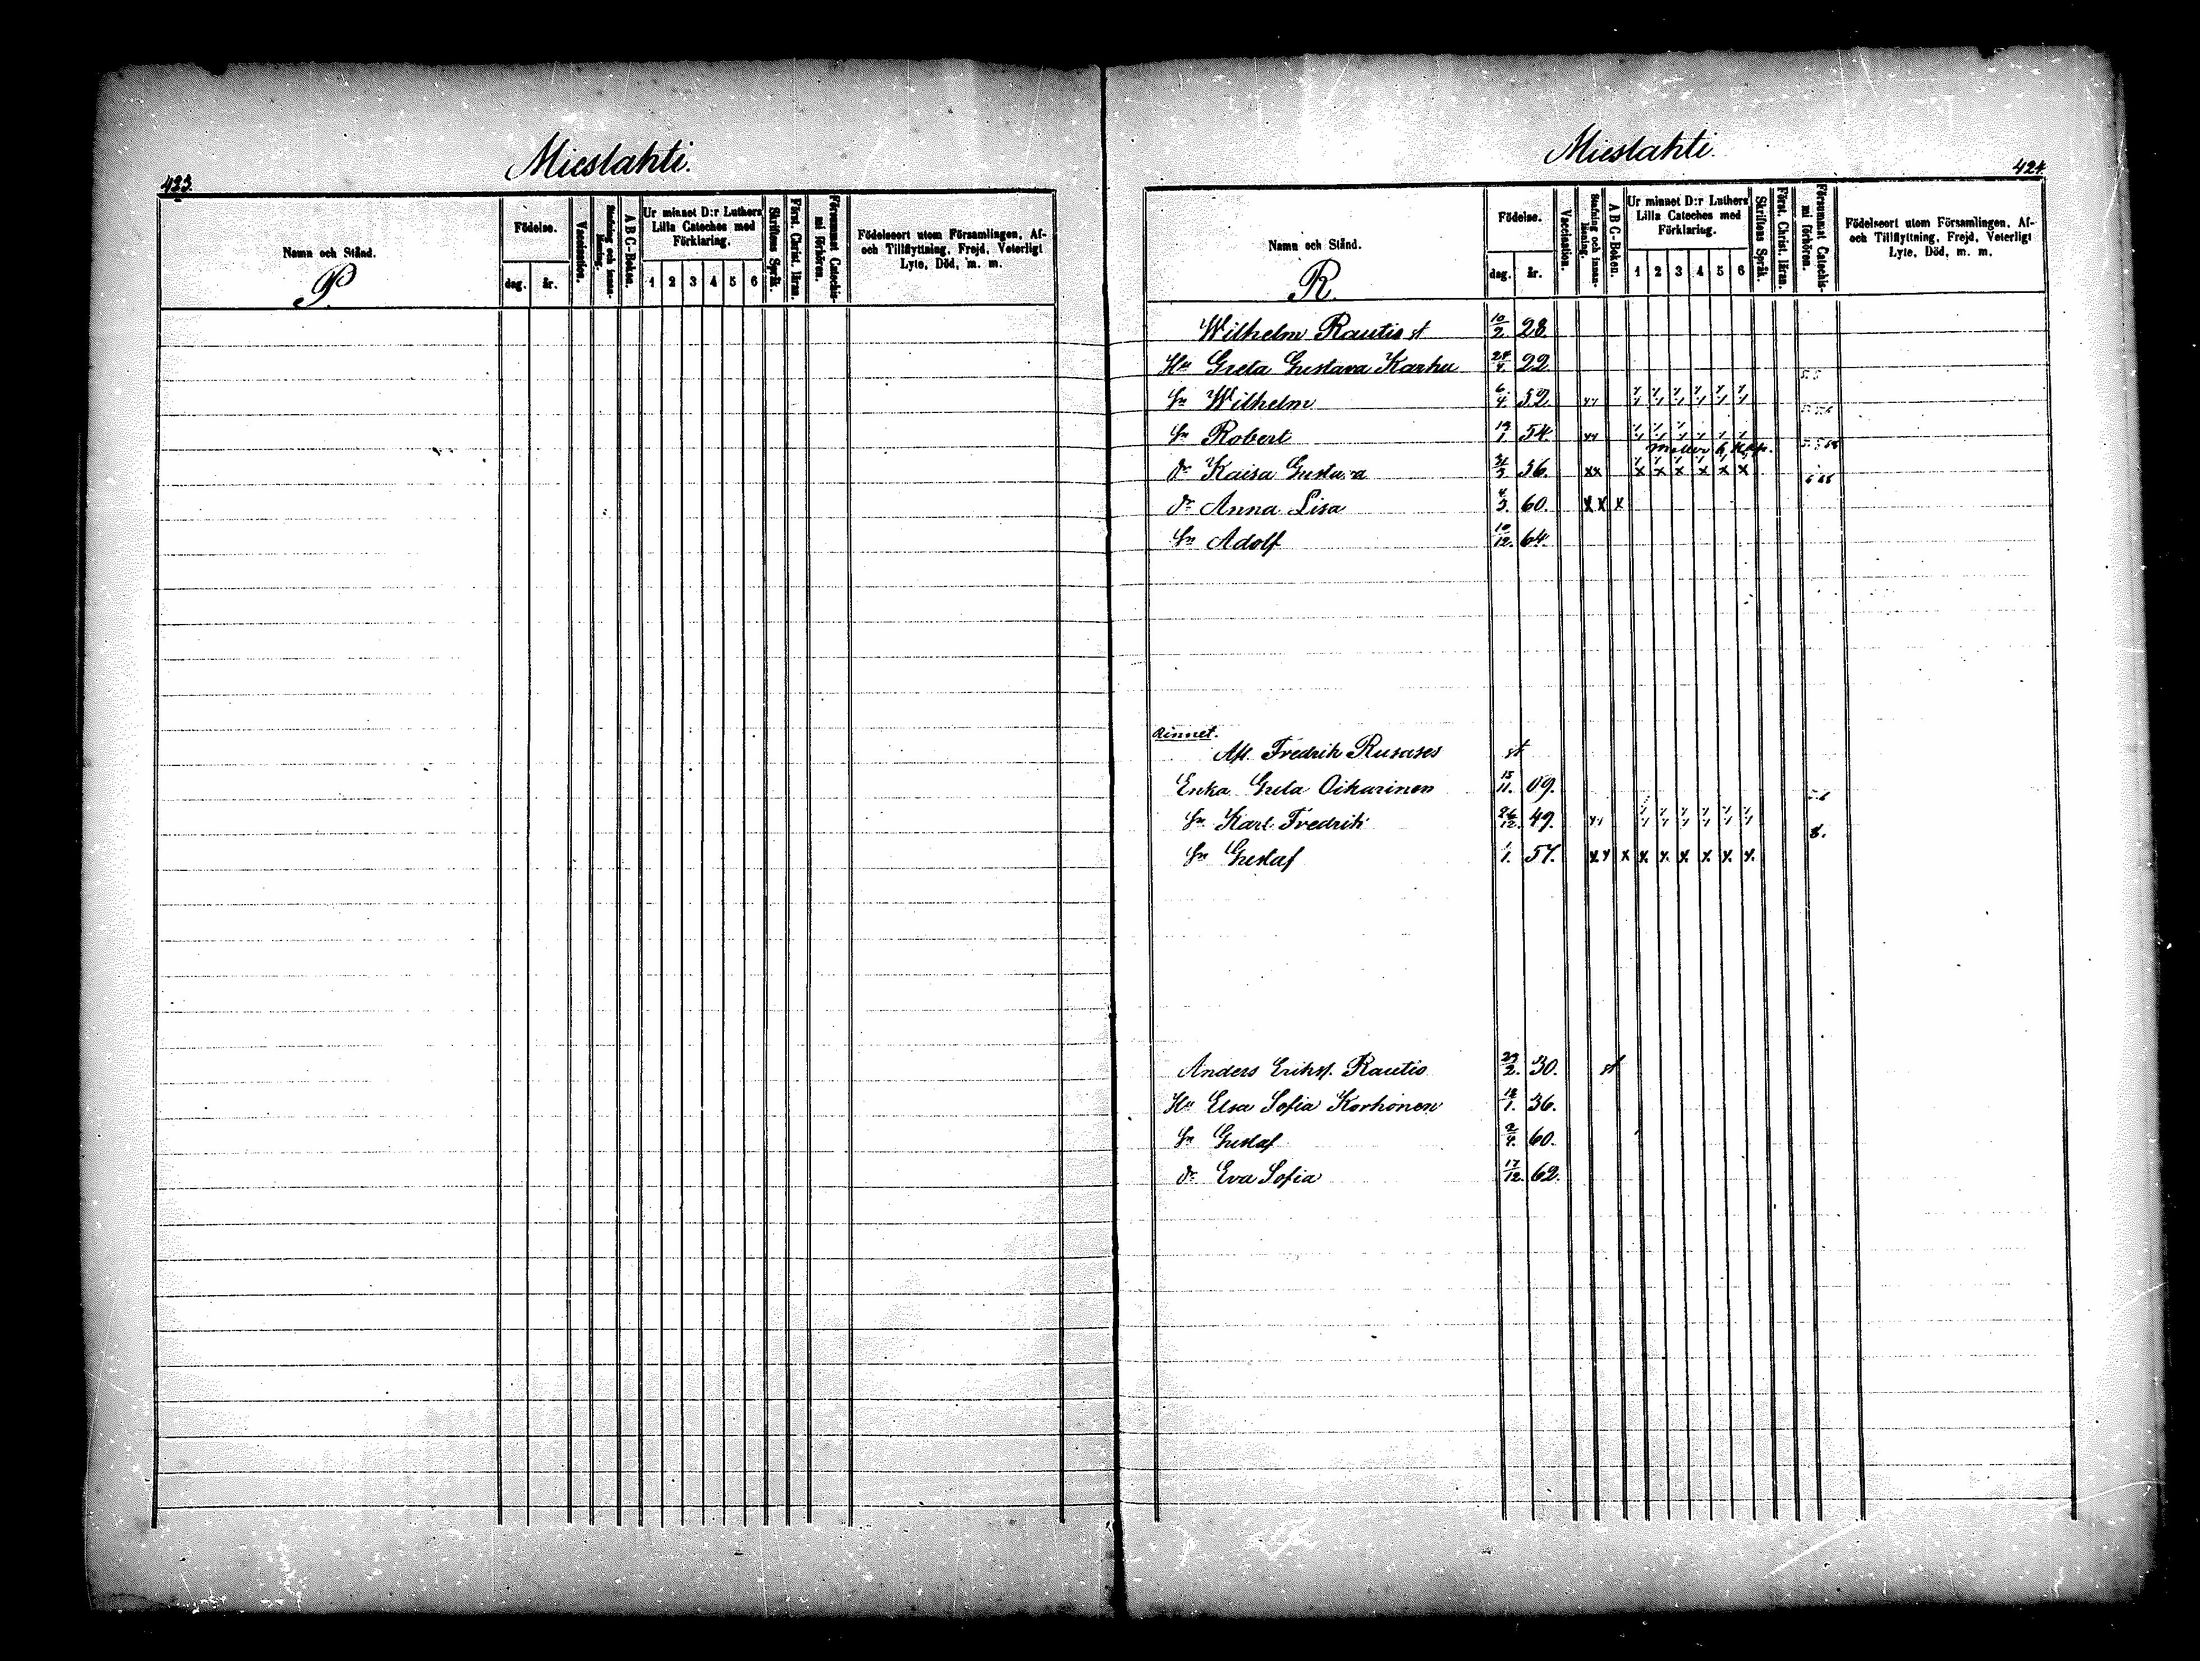 Mieslahti.
423.
Namn och Stånd.
P.
Födelse.
dag.
år.
Vaccination.
Stafning och innan-
läsning.
A B C-Boken.
Ur minnet D:r Luthers
Lilla Cateches med
Förklaring.
1 2 3 4 5 6
Skriftens Språk.
Först. Christ. läran.
Försummat Catechis-
mi förhören.
Födelseort utom Församlingen, Af-
och Tillflyttning, Frejd, Veterligt
Lyte, Död, m. m.
Mieslahti.
424.
Namn och Stånd.
R.
Födelse.
dag.
år.
Vaccination.
Stafning och innan-
läsning.
A B C-Boken.
Ur minnet D:r Luthers
Lilla Cateches med
Förklaring.
1 2 3 4 5 6
Skriftens Språk.
Först. Christ. läran.
Försummat Catechis-
mi förhören.
Födelseort utom Församlingen, Af-
och Tillflyttning, Frejd, Veterligt
Lyte, Död, m. m.
Wilhelm Rautio st 10/2. 28.
Hu Greta Gustava Karhu 24/4 22.
Sn Wilhelm 6/4. 52.
Sn Robert 19/1 54.
dr Kaisa Gustava 31/3 56. xx x x x x x x
dr Anna Lisa 4/3. 60. x x x
Sn Adolf 10/12. 64.
Rinnet.
Afl. Fredrik Rusases st
Enka Greta Oikarinen 15/11. 09.
Sn Karl Fredrik 26/12. 49. 8.
Sn Gustaf 1/1. 57. x x x x x x x x x
Anders Eriksf. Rautio 29/2. 30. st
Hu Elsa Sofia Korhonen 18/1. 36.
Sn Gustaf 2/8. 60.
dr Eva Sofia 17/12. 62.